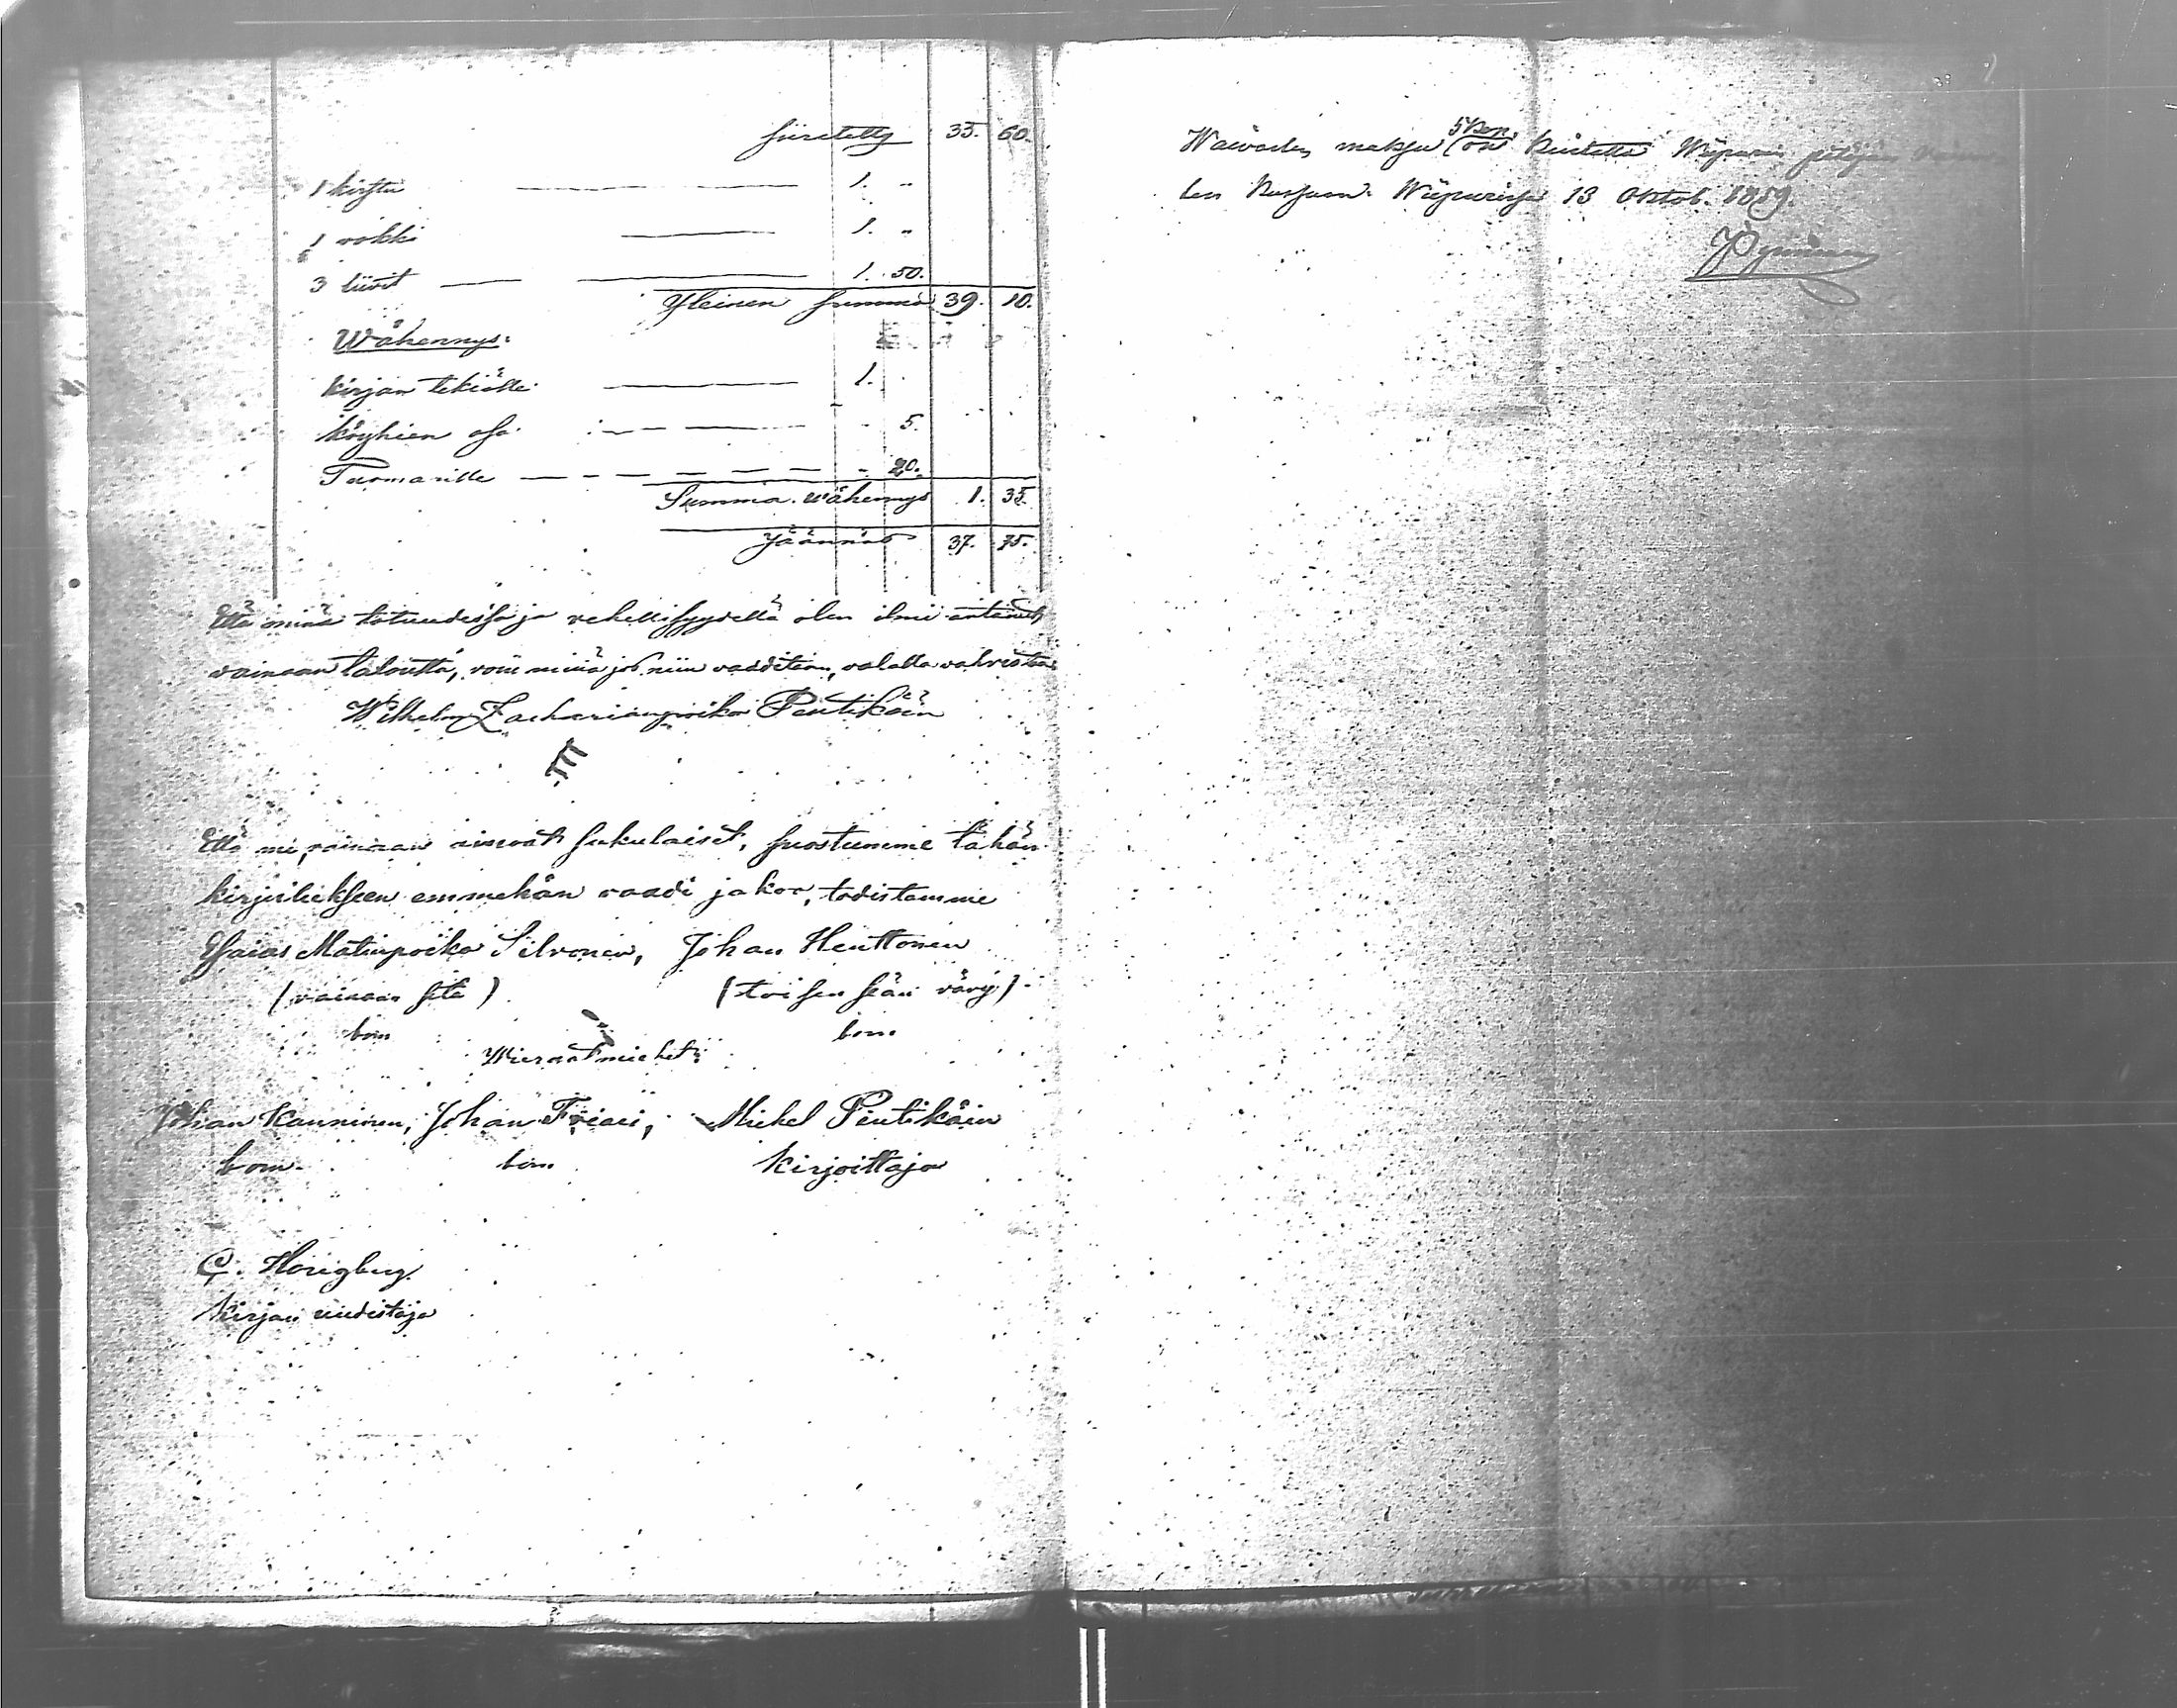 siiretetty 35. 60.
1 kirstu — 1. "
1 vokki — 1. "
3 liivit — 1. 50.
Yleinen summa 39. 10.
Wähennys:
Kirjan tekiälle — 1.
Köyhien osa — 5.
Tuomarille — 20.
Summa wähennys 1. 35.
Jäännös 37. 75.
Että minä totuudessa ja rehellisyydellä olen ilmi antanut
vainaan taloutta, voin minä jos niin vaaditaan, valalla vahvistaa
Wilhelm Zacharianpoika Pentikäin
Että me, vainaan ainevat sukulaiset, suostumme tähän
kirjutukseen emmekän vaadi jakoa, todistamme
Esaias Matinpoika Silvonen, Johan Henttonen
(vainaan setä) (toisen siän vävy)
bom bom
Wieraat miehet:
Johan Kanninen, Johan Friari, Michel Pentikäin
bom. bom Kirjoittaja
C. Hörigberg
Kirjan uudistaja
Waivasten maksu 5 kop. on Wiipurin pitäjän
ten Kassaan. Wiipurissa 13 Oktob. 1859.